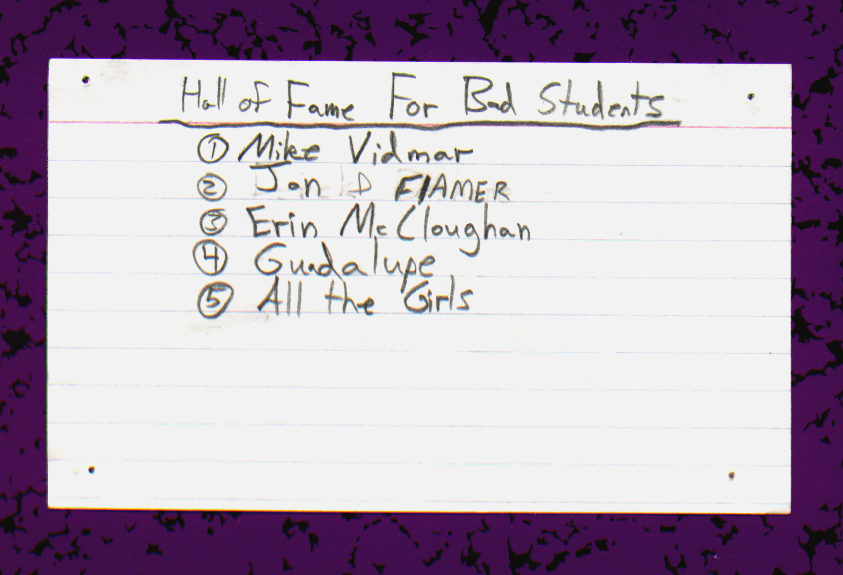 Hall of Fame For Bad Students
① Mike Vidmar
② Jon D FlAMER
③ Erin McCloughan
④ Guadalupe
⑤ All the Girls